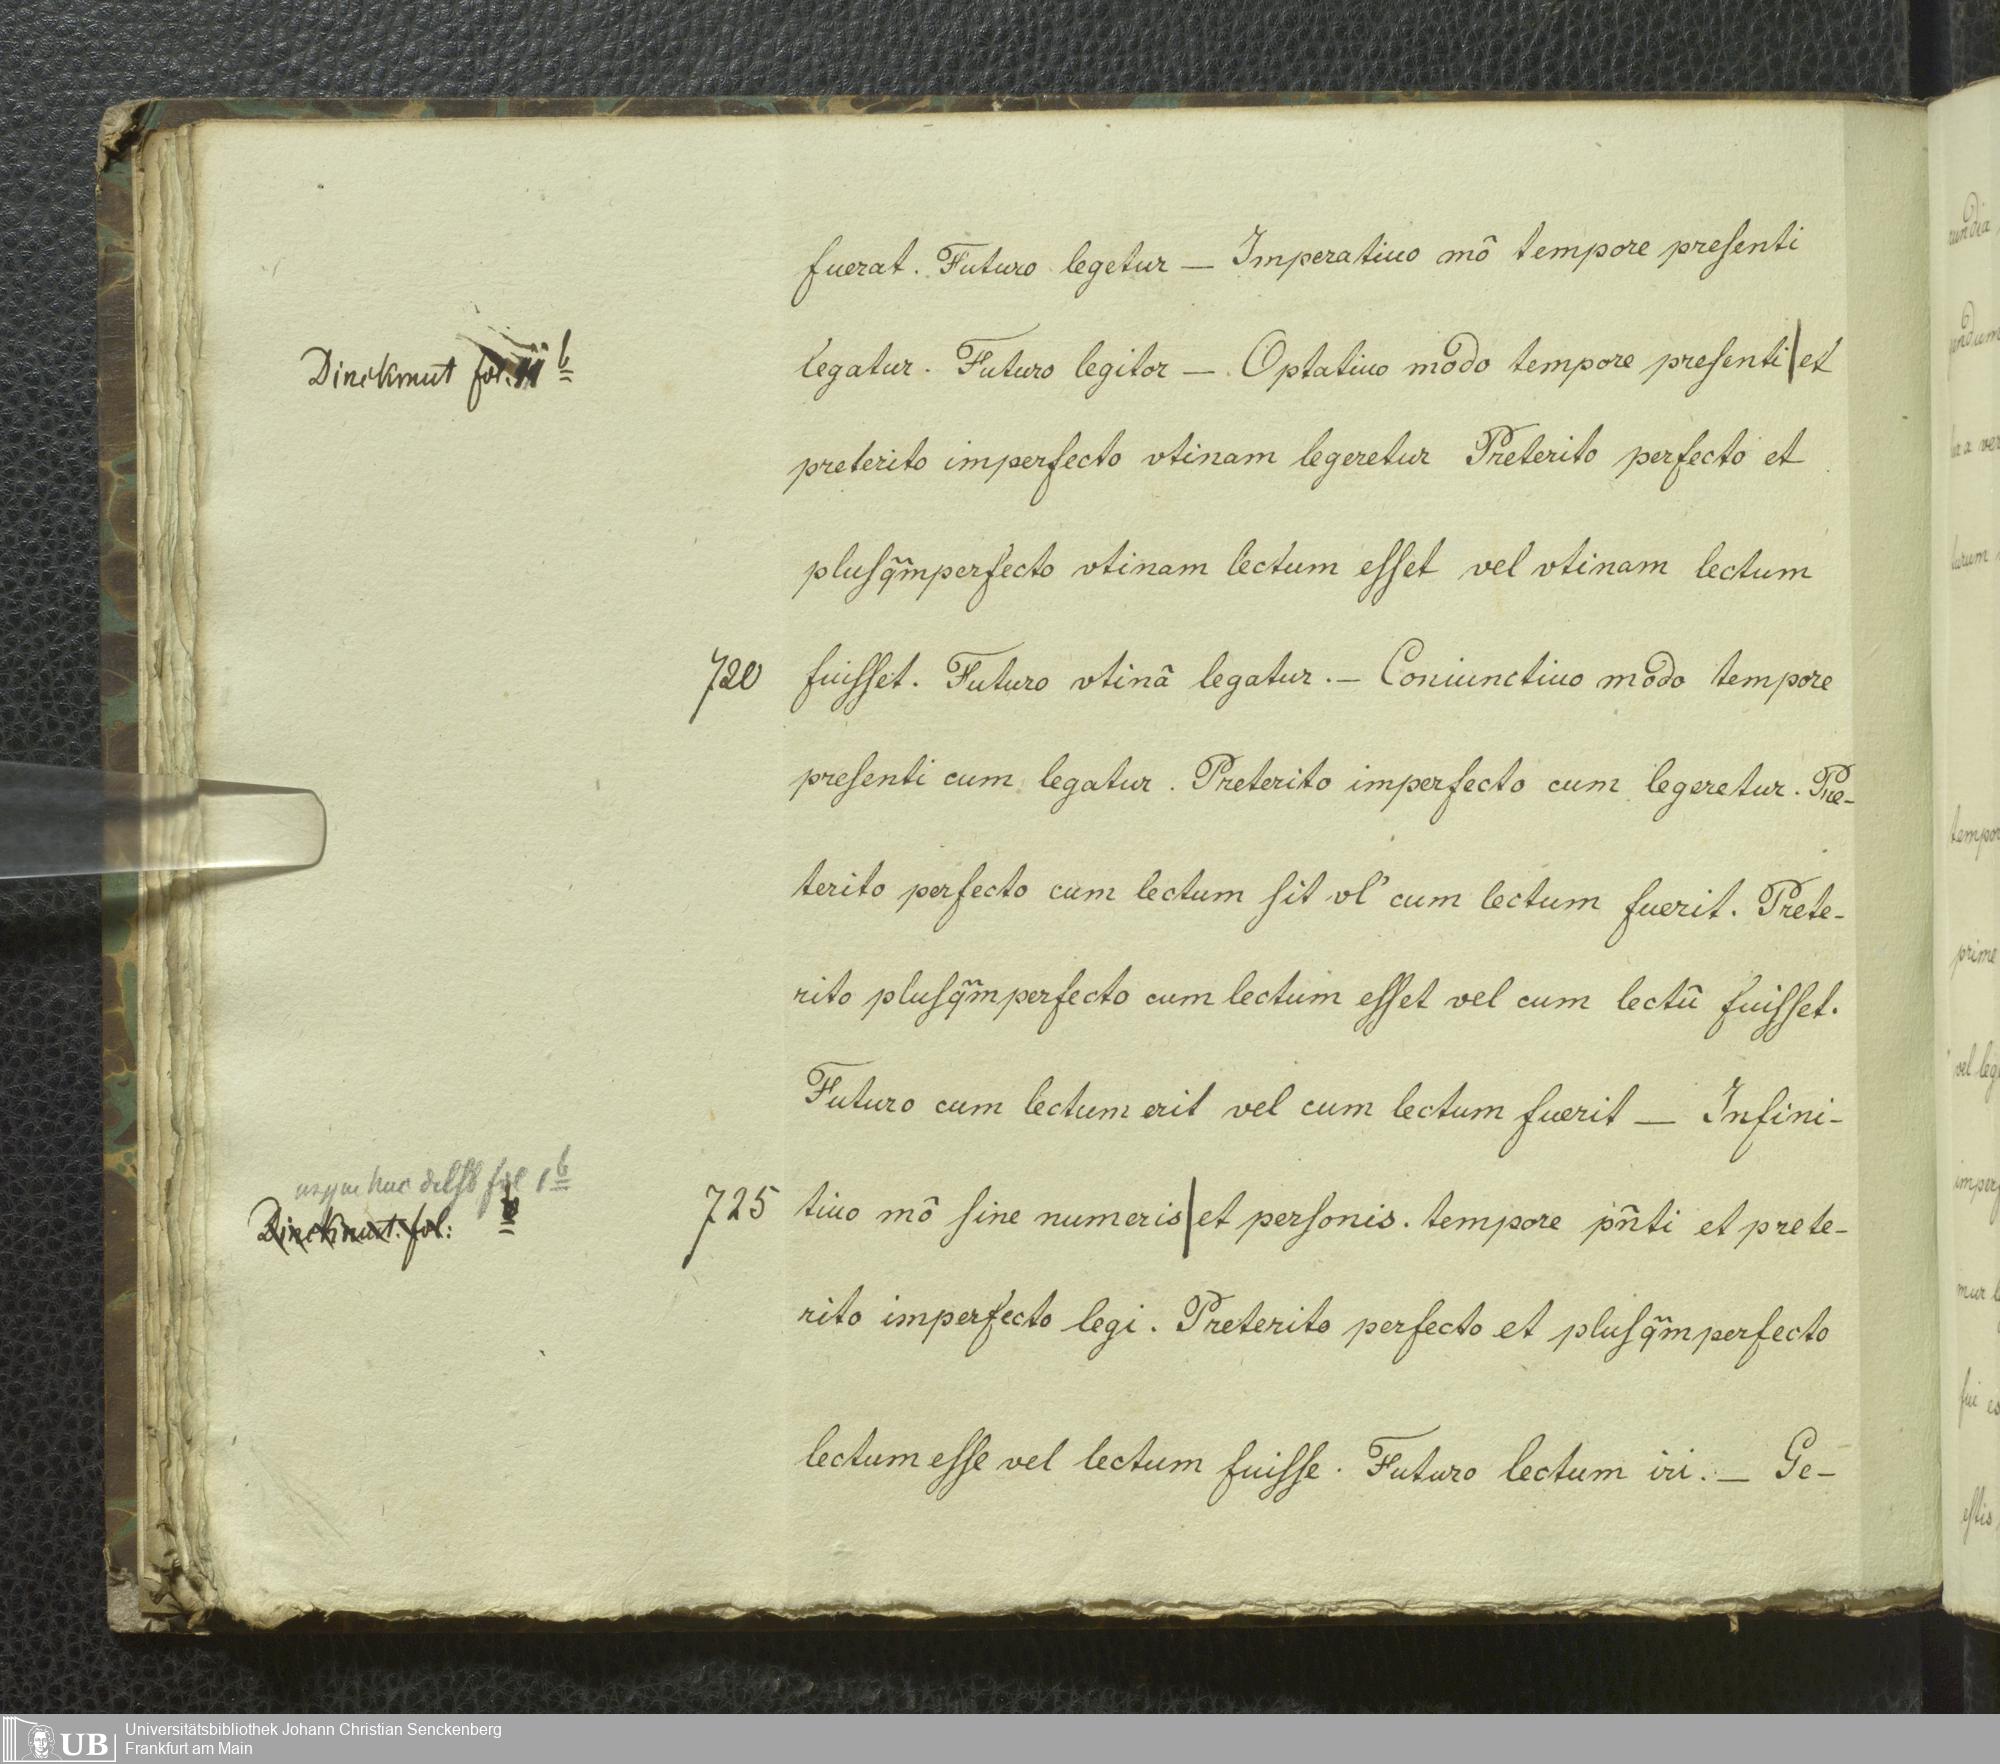 fuerat. Futuro legetur — Imperatiuo mô tempore preſenti
Dinckmut fol. b
legatur. Futuro legitor — Optatiuo modo tempore preſenti | et
preterito imperfecto vtinam legeretur Preterito perfecto et
plusq̃mperfecto vtinam lectum eſſet vel vtinam lectum
720 fuiſſet. Futuro vtinã legatur. — Coniunctiuo modo tempore
preſenti cum legatur. Preterito imperfecto cum legeretur. Pre-
terito perfecto cum lectum ſit vl' cum lectum fuerit. Prete-
rito plusq̃mperfecto cum lectum eſſet vel cum lectũ fuiſſet.
Futuro cum lectum erit vel cum lectum fuerit — Infini-
huc fol 1 b
Dinckmut. fol:
725 tiuo mô ſine numeris | et perſonis. tempore pñti et prete-
rito imperfecto legi. Preterito perfecto et plusq̃mperfecto
lectum eſſe vel lectum fuiſſe. Futuro lectum iri. — Ge-
UB Universitätsbibliothek Johann Christian Senckenberg
Frankfurt am Main